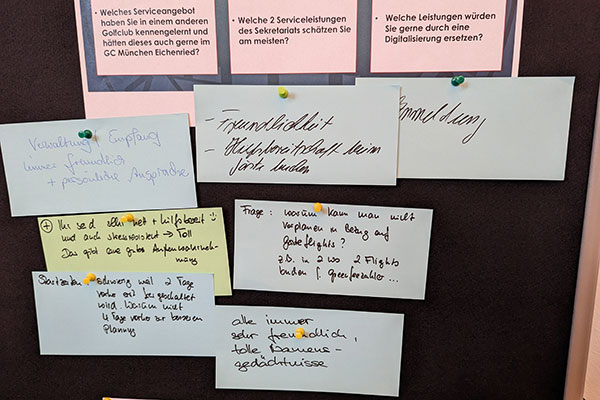 • Welches Serviceangebot
haben Sie in einem anderen
Golfclub kennengelernt und
hätten dieses auch gerne im
GC München Eichenried?
• Welche 2 Serviceleistungen
des Sekretariats schätzen Sie
am meisten?
• Welche Leistungen würden
Sie gerne durch eine
Digitalisierung ersetzen?
- Freundlichkeit
- Hilfsbereitschaft beim
Gäste buchen
Anmeldung
Verwaltung Empfang
immer freundlich
+ persönliche Ansprache
+ Ihr seid sehr nett + hilfsbereit :)
und auch stressresistent → Toll
Das gibt eine gute Außenwahrneh-
mung
Frage: warum kann man nicht
vorplanen in Bezug auf
Gästeflights?
z.B. in 2 wo 2 Flights
buchen f. Greenfeezahler...
Startzeiten schwierig weil 2 Tage
vorher erst frei geschaltet
wird. Warum nicht
4 Tage vorher zur besseren
Planung
alle immer
sehr freundlich,
tolle Namens-
gedächtnisse